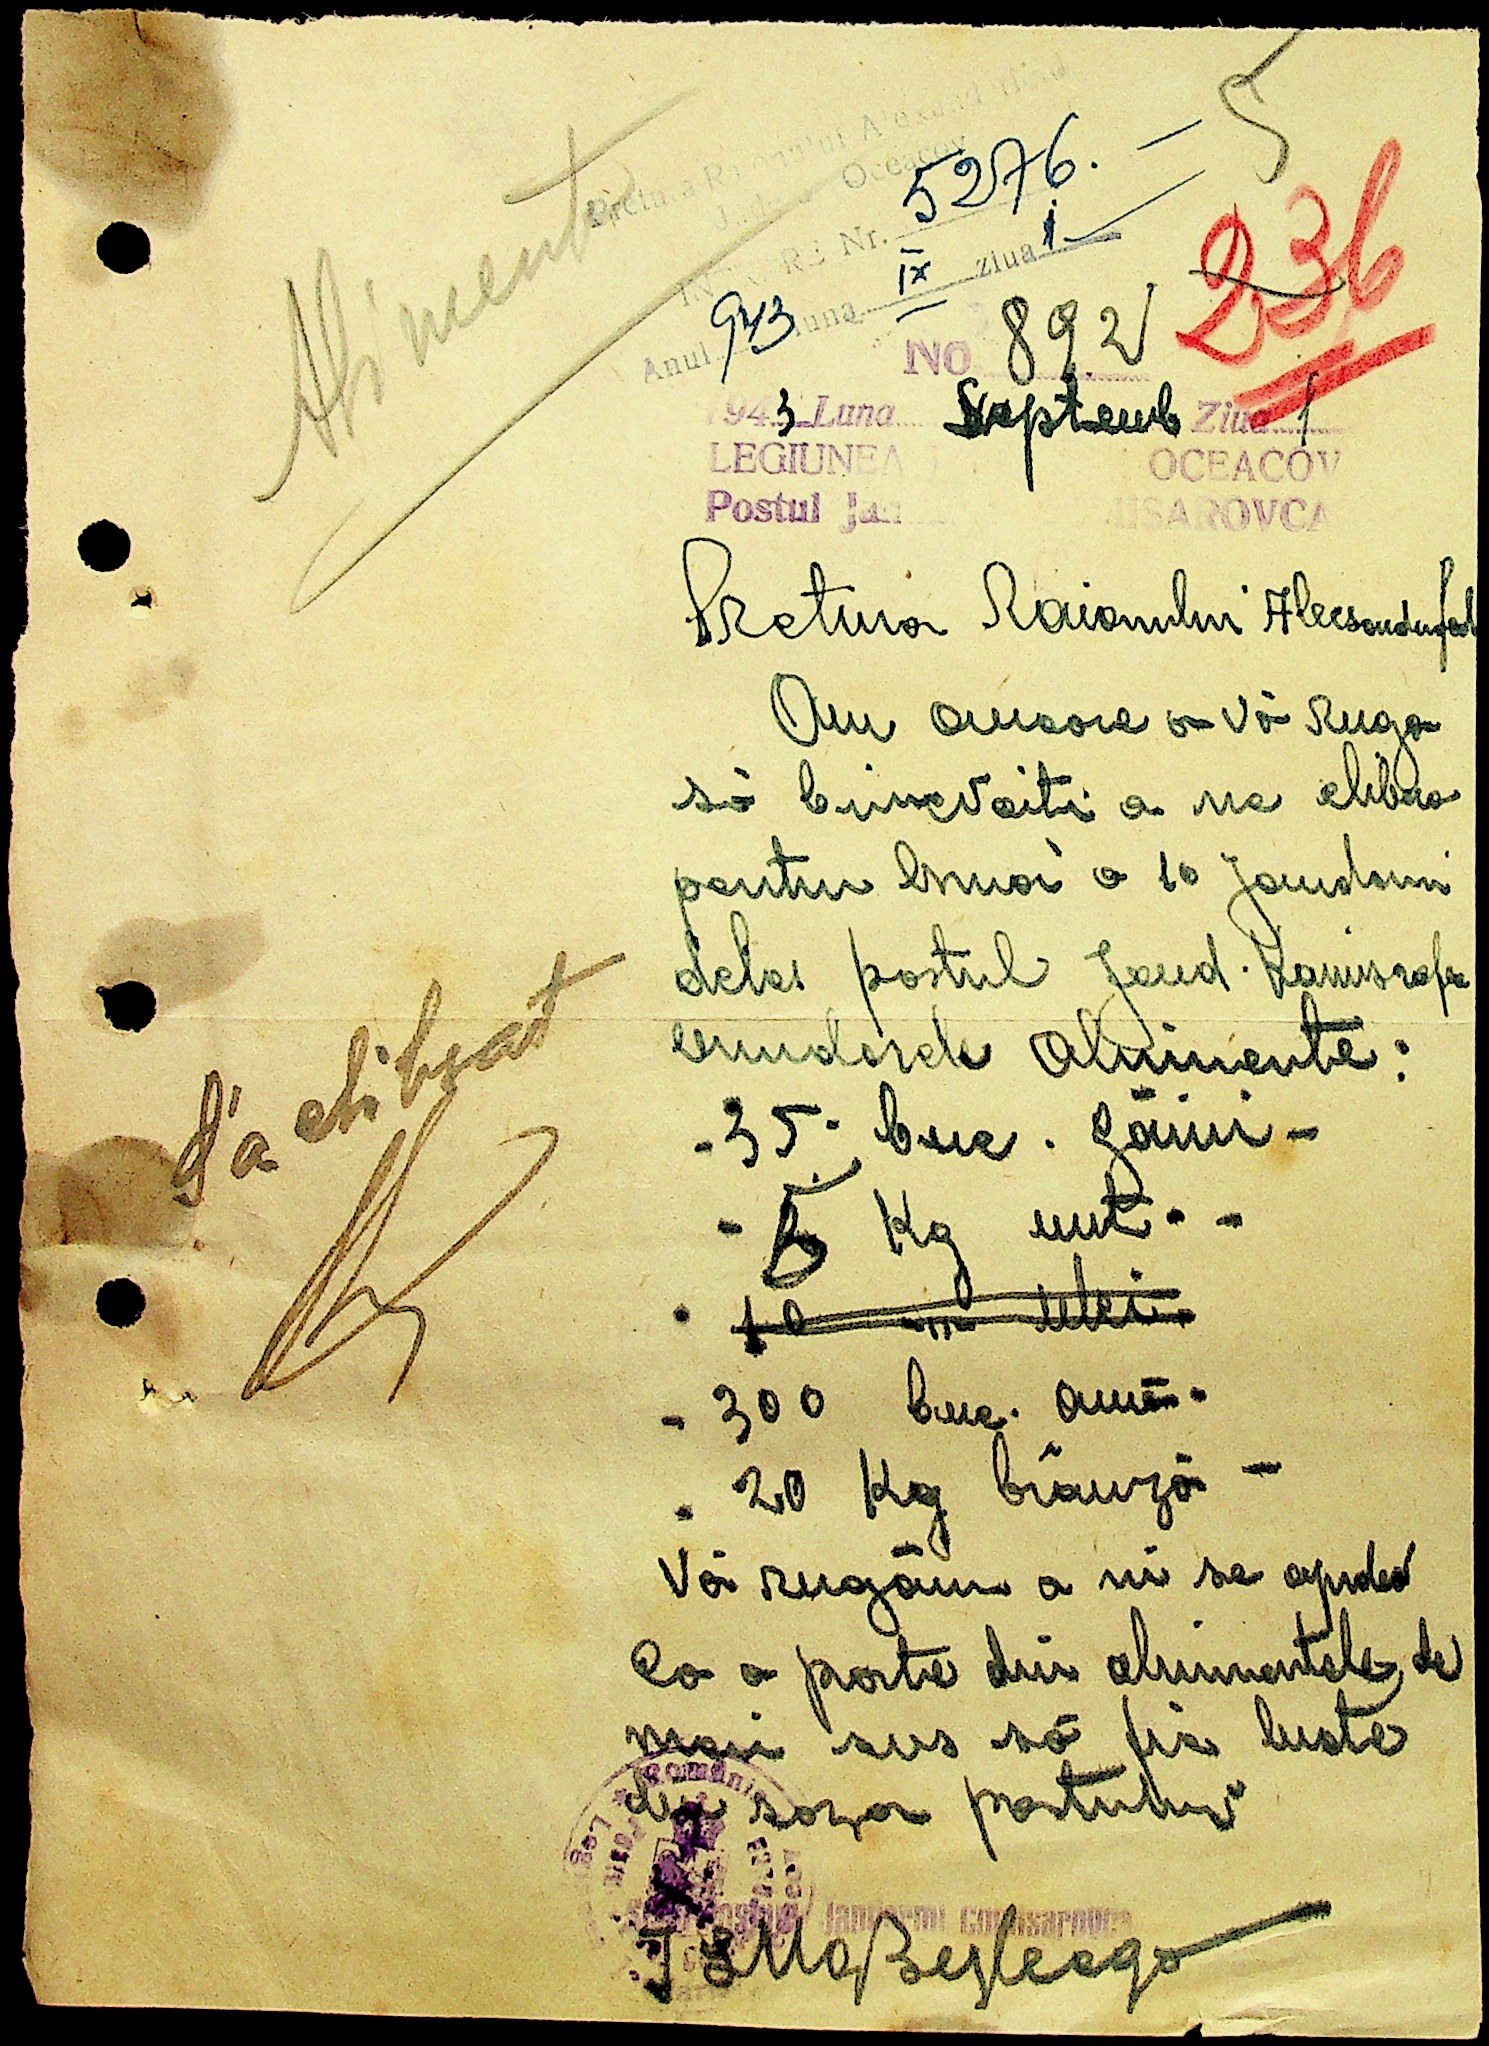 5
Alimente
Pretura Raionului Alexandrfeld
Oceacov
Nr. 5276.
Anul 943 luna IX ziua 1
236
No 892
1943 Luna Septemb Ziua 1
LEGIUNEA J OCEACOV
Postul Jan MISAROVCA
Pretura Raionului Alecsandrfeld
Am onoare a vă ruga
să binevoiti a ne elibera
pentru hrana a 10 jandarmi
dela postul Jand.
următoarele alimente:
- 35. buc. găini -
- 5 Kg unt. -
10 -"- ulei
- 300 buc. ouă.
. 20 Kg brânză -
Vă rugăm a ni se aproba
ca o parte din alimentele de
mai sus să fie luate
din raza postului
S'a eliberat
România
Postul Jandarmi Comisarovca